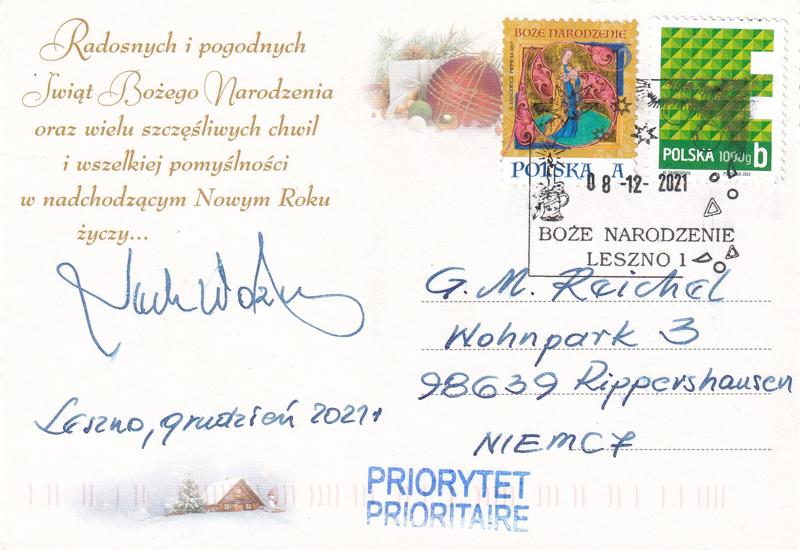 Radosnych i pogodnych
Świąt Bożego Narodzenia
oraz wielu szczęśliwych chwil
i wszelkiej pomyślności
w nadchodzącym Nowym Roku
życzy...
Leszno, grudzień 2021r
BOŻE NARODZENIE
POLSKA A
POLSKA 1000g b
08 -12- 2021
BOŻE NARODZENIE
LESZNO 1
G. M. Reichel
Wohnpark 3
98639 Rippershausen
NIEMCY
PRIORYTET
PRIORITAIRE